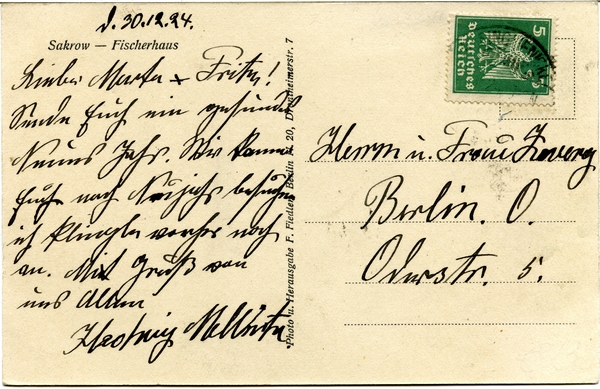 d. 30.12.24.
Sakrow — Fischerhaus
Liebe Marta + Fritz!
Sende Euch ein gesundes
Neues Jahr. Wir kommen
Euch nach Neujahr besuchen
ich klingle vorher noch
an. Mit Gruß von
uns Allen
Hedwig
Photo u. Herausgabe F. Fiedler, Berlin N. 20, Drontheimerstr. 7
5
Deutsches
Reich
Herrn u. Frau Zwerg
Berlin. O.
Oderstr. 5.